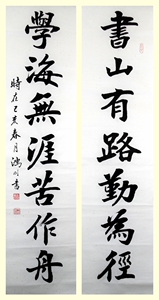 書山有路勤為徑
學海無涯苦作舟
時在己亥春月